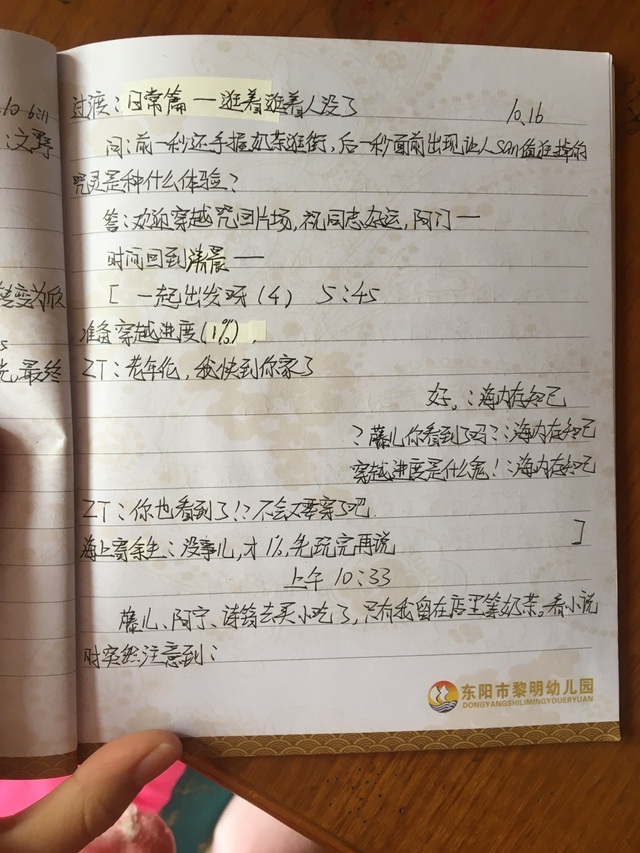 10 6:11
:文野
转变为欣
s
先,最终
过渡:日常篇一逛着逛着人没了 10.16
问:前一秒还手握奶茶逛街,后一秒面前出现让人san值狂掉的
咒灵是种什么体验?
答:欢迎穿越咒回片场,祝同志好运,阿门一
时间回到清晨一
[ 一起出发呀(4) 5:45
准备穿越进度(1%).
ZT:老年伦,我快到你家了
好。:海内存知己
?藤儿你看到了吗?:海内存知己
穿越进度是什么鬼!:海内存知己
ZT:你也看到了!?不会又要穿了吧
海上寄余生:没事儿,才1%,先玩完再说 ]
上午 10:33
藤儿、阿宁、诗锦去买小吃了,只有我留在店里等奶茶。看小说
时突然注意到:
东阳市黎明幼儿园
DONGYANGSHILIMINGYOUERYUAN